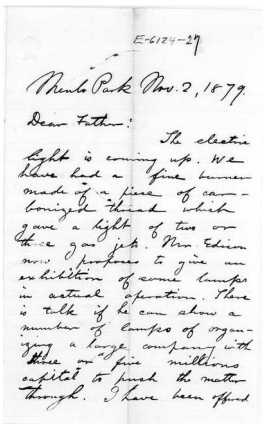 E-6124-27
Menlo Park Nov. 2, 1879.
Dear Father:
The electric
light is coming up. We
have had a fine burner
made of a piece of car-
bonized thread which
gave a light of two or
three gas jets. Mr. Edison
now proposes to give an
exhibition of some lamps
in actual operation. There
is talk if he can show a
number of lamps of organ-
izing a large company with
three or five millions
capital to push the matter
through. I have been offered